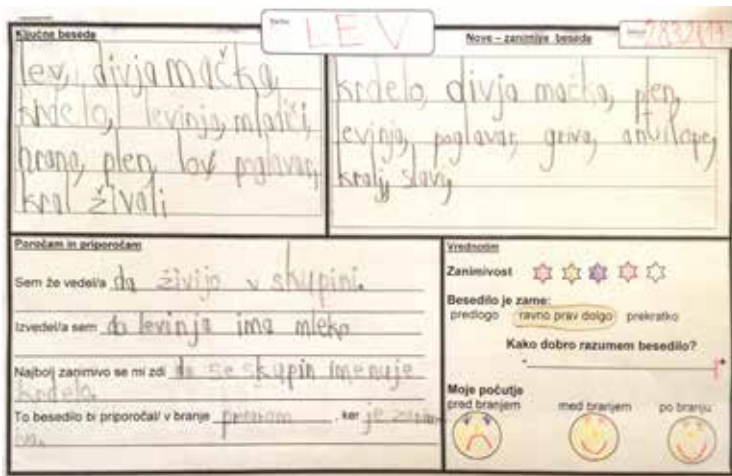 LEV
Ključne besede
lev, divja mačka,
krdelo, levinja, mladiči,
hrana, plen, lov poglavar,
kral živali
Nove – zanimive besede
krdelo, divja mačka, plen,
levinja, poglavar, griva, antilope,
kralj,
Poročam in priporočam
Sem že vedel/a da živijo v skupini.
Izvedel/a sem da levinja ima mleko
Najbolj zanimivo se mi zdi da se skupin imenuje
krdelo.
To besedilo bi priporočal/ v branje , ker je
Vrednotim
Zanimivost
Besedilo je zame:
predlogo ravno prav dolgo prekratko
Kako dobro razumem besedilo?
- +
Moje počutje
pred branjem med branjem po branju